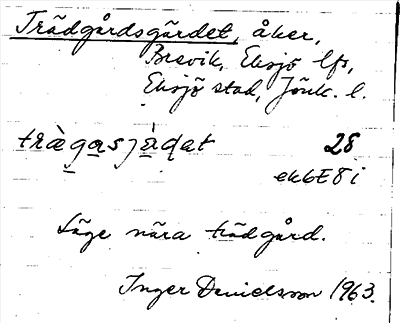 Trädgårdsgärdet, åker,
Bresvik, Eksjö lfs,
Eksjö stad, Jönk. l.
trä̀gasjàḍat 28
ek6E8i
Läge nära trädgård.
Inger Danielsson 1963.